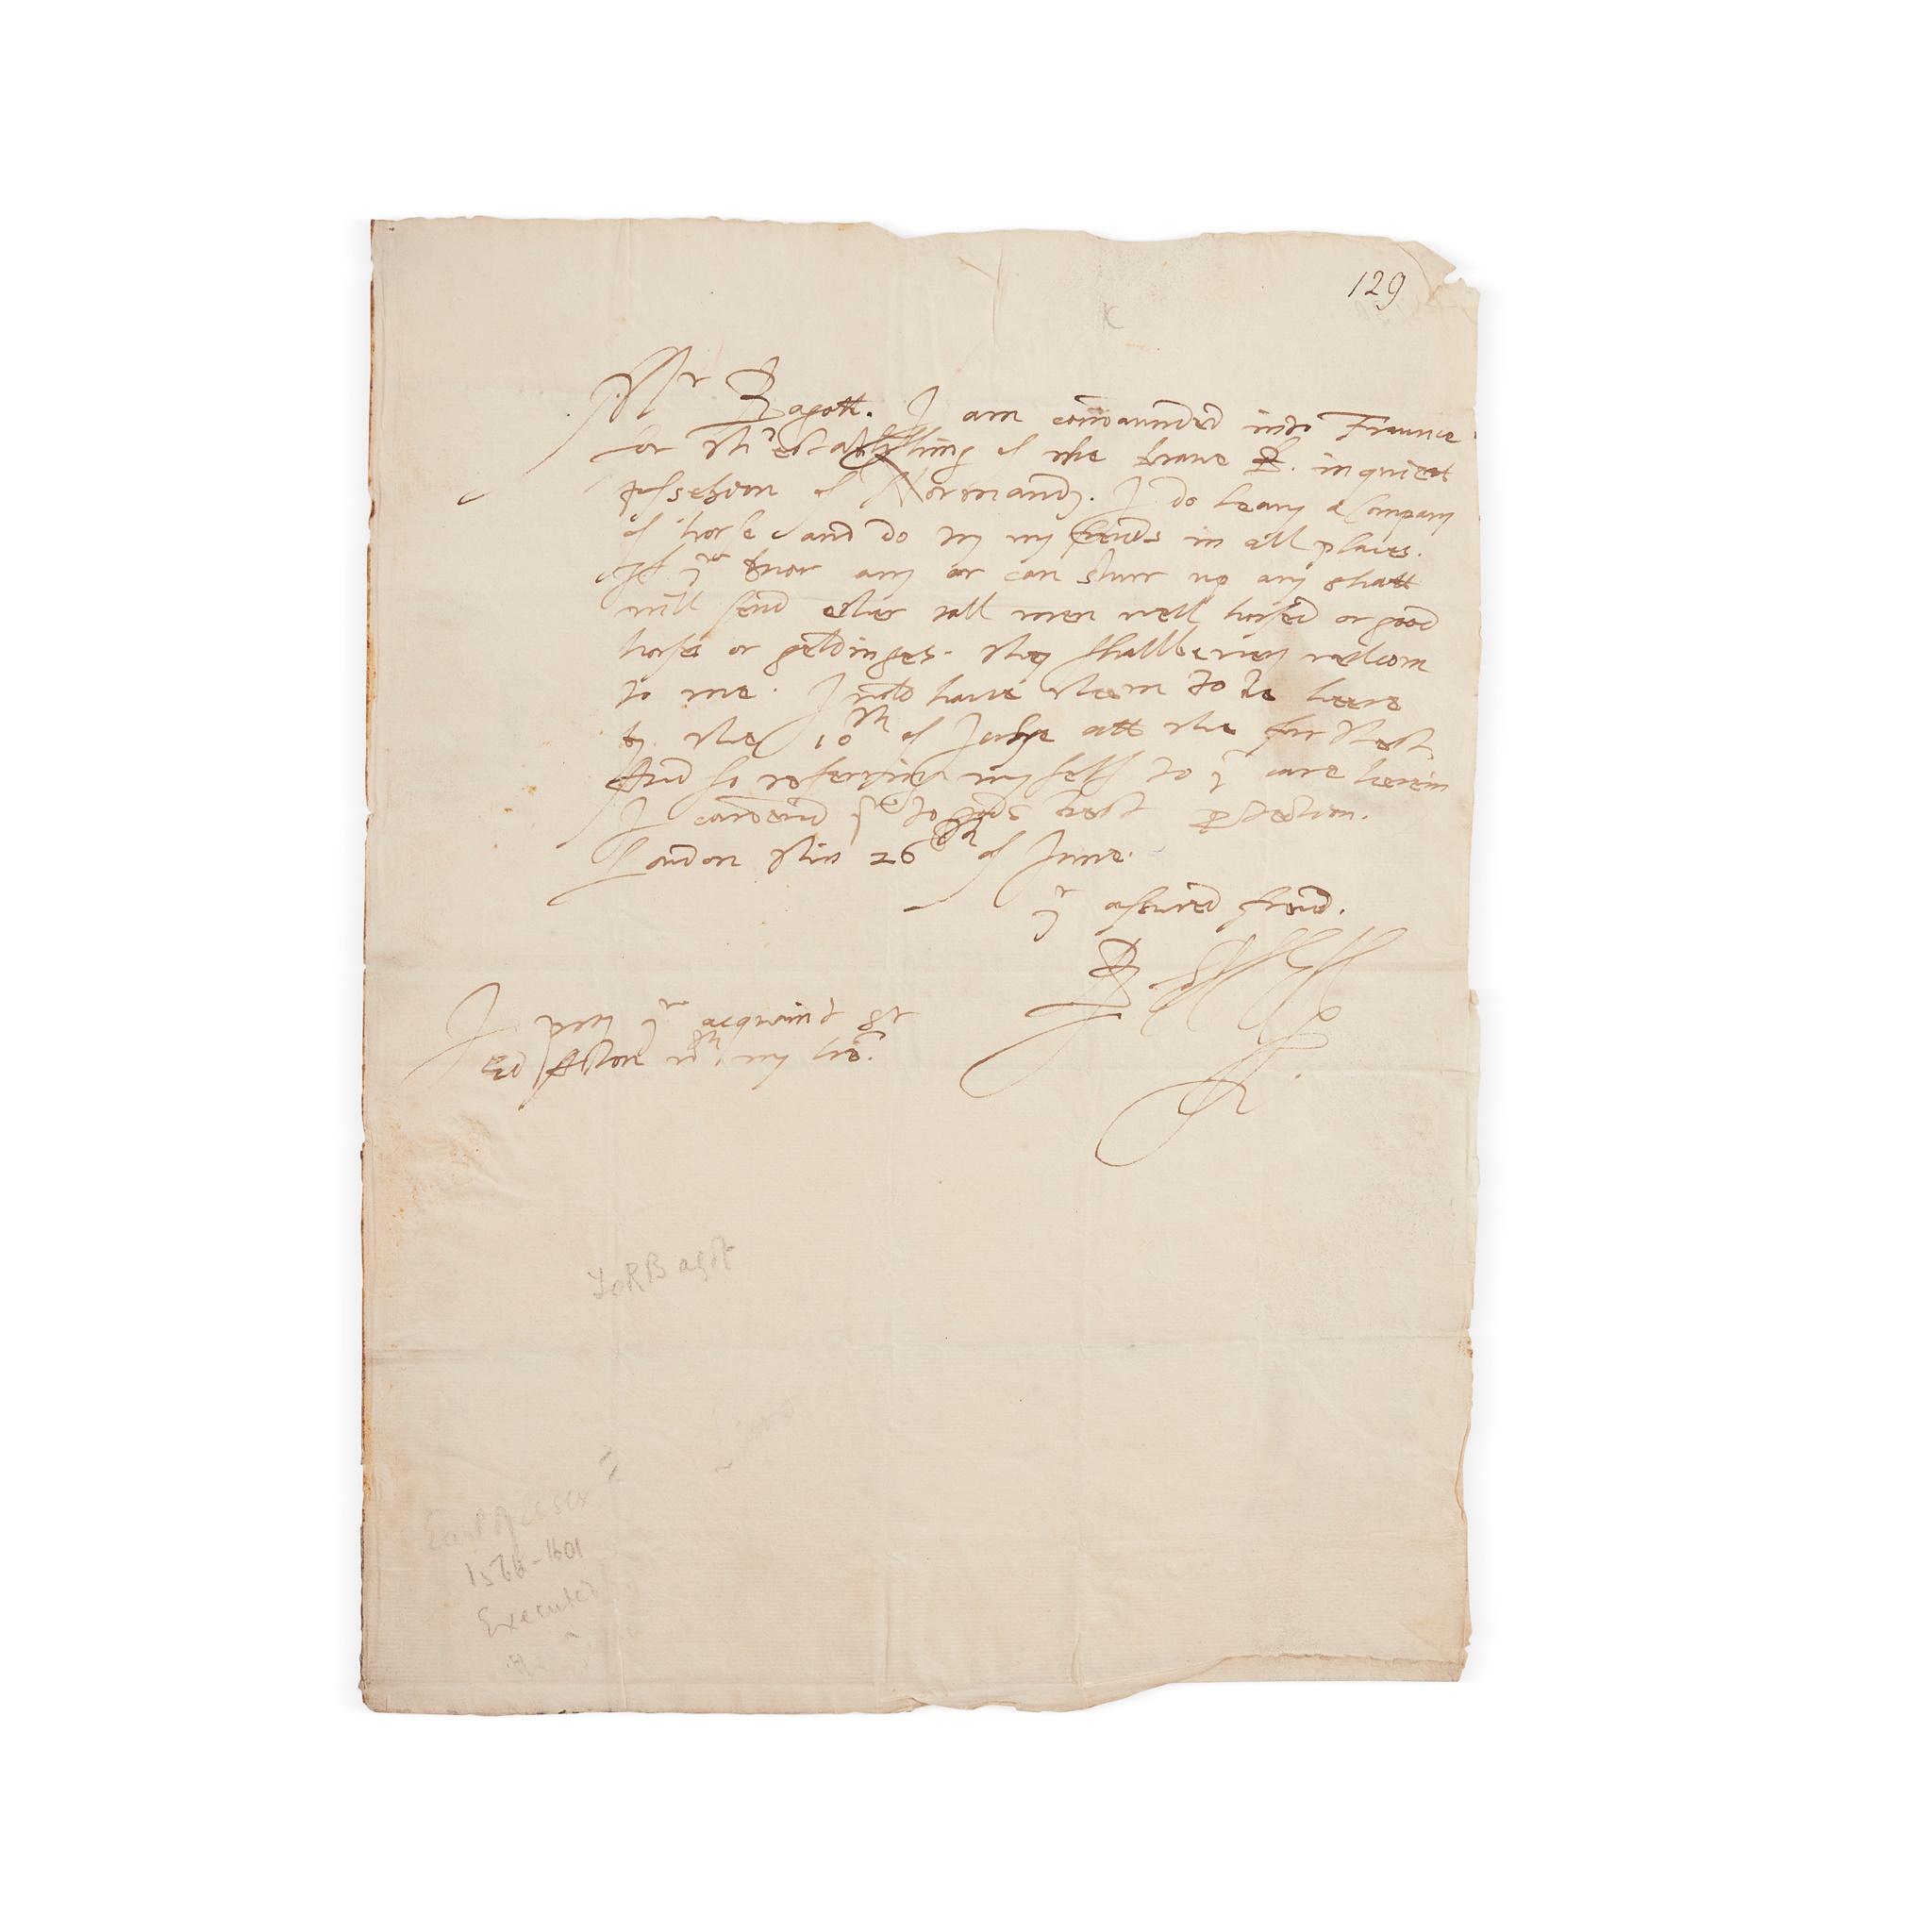 129
Mr Bagott. I am comaunded into Fraunce
for th'establishing of the brave K. in quiett
possession of Normandy. I do leavy a Company
of horse and do try my frends in all places.
If you know any or can sturr up any that
will send ether tall men well horsed or good
horses or geldinges. they shallbe very wellcom
to me. I wold have them to be heere
by the 10th of July att the furthest.
And so referring my self to yr care herein
I comend you to gods best protection.
London this 26th of June.
yr assured frend.
R. Essex
I pray you acquaint Sr
Ed Aston wth my lre.
To R Bagot
Earl Essex
1566-1601
Executed